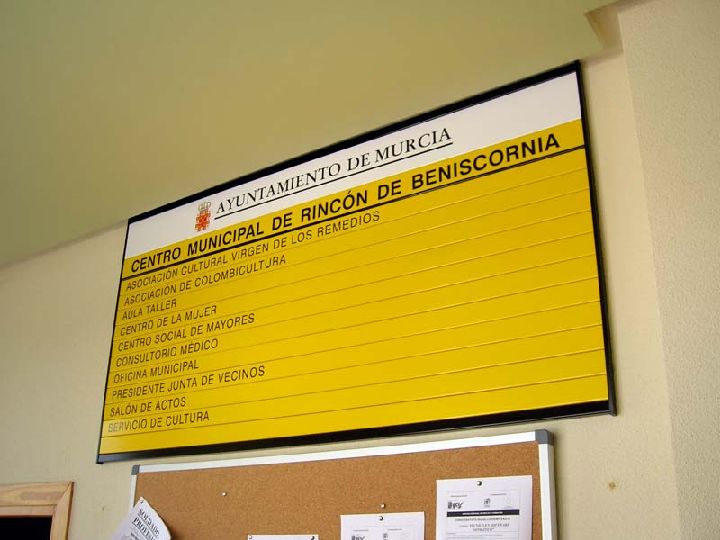 AYUNTAMIENTO DE MURCIA
CENTRO MUNICIPAL DE RINCÓN DE BENISCORNIA
ASOCIACIÓN CULTURAL VIRGEN DE LOS REMEDIOS
ASOCIACIÓN DE COLOMBICULTURA
AULA TALLER
CENTRO DE LA MUJER
CENTRO SOCIAL DE MAYORES
CONSULTORIO MÉDICO
OFICINA MUNICIPAL
PRESIDENTE JUNTA DE VECINOS
SALÓN DE ACTOS
SERVICIO DE CULTURA